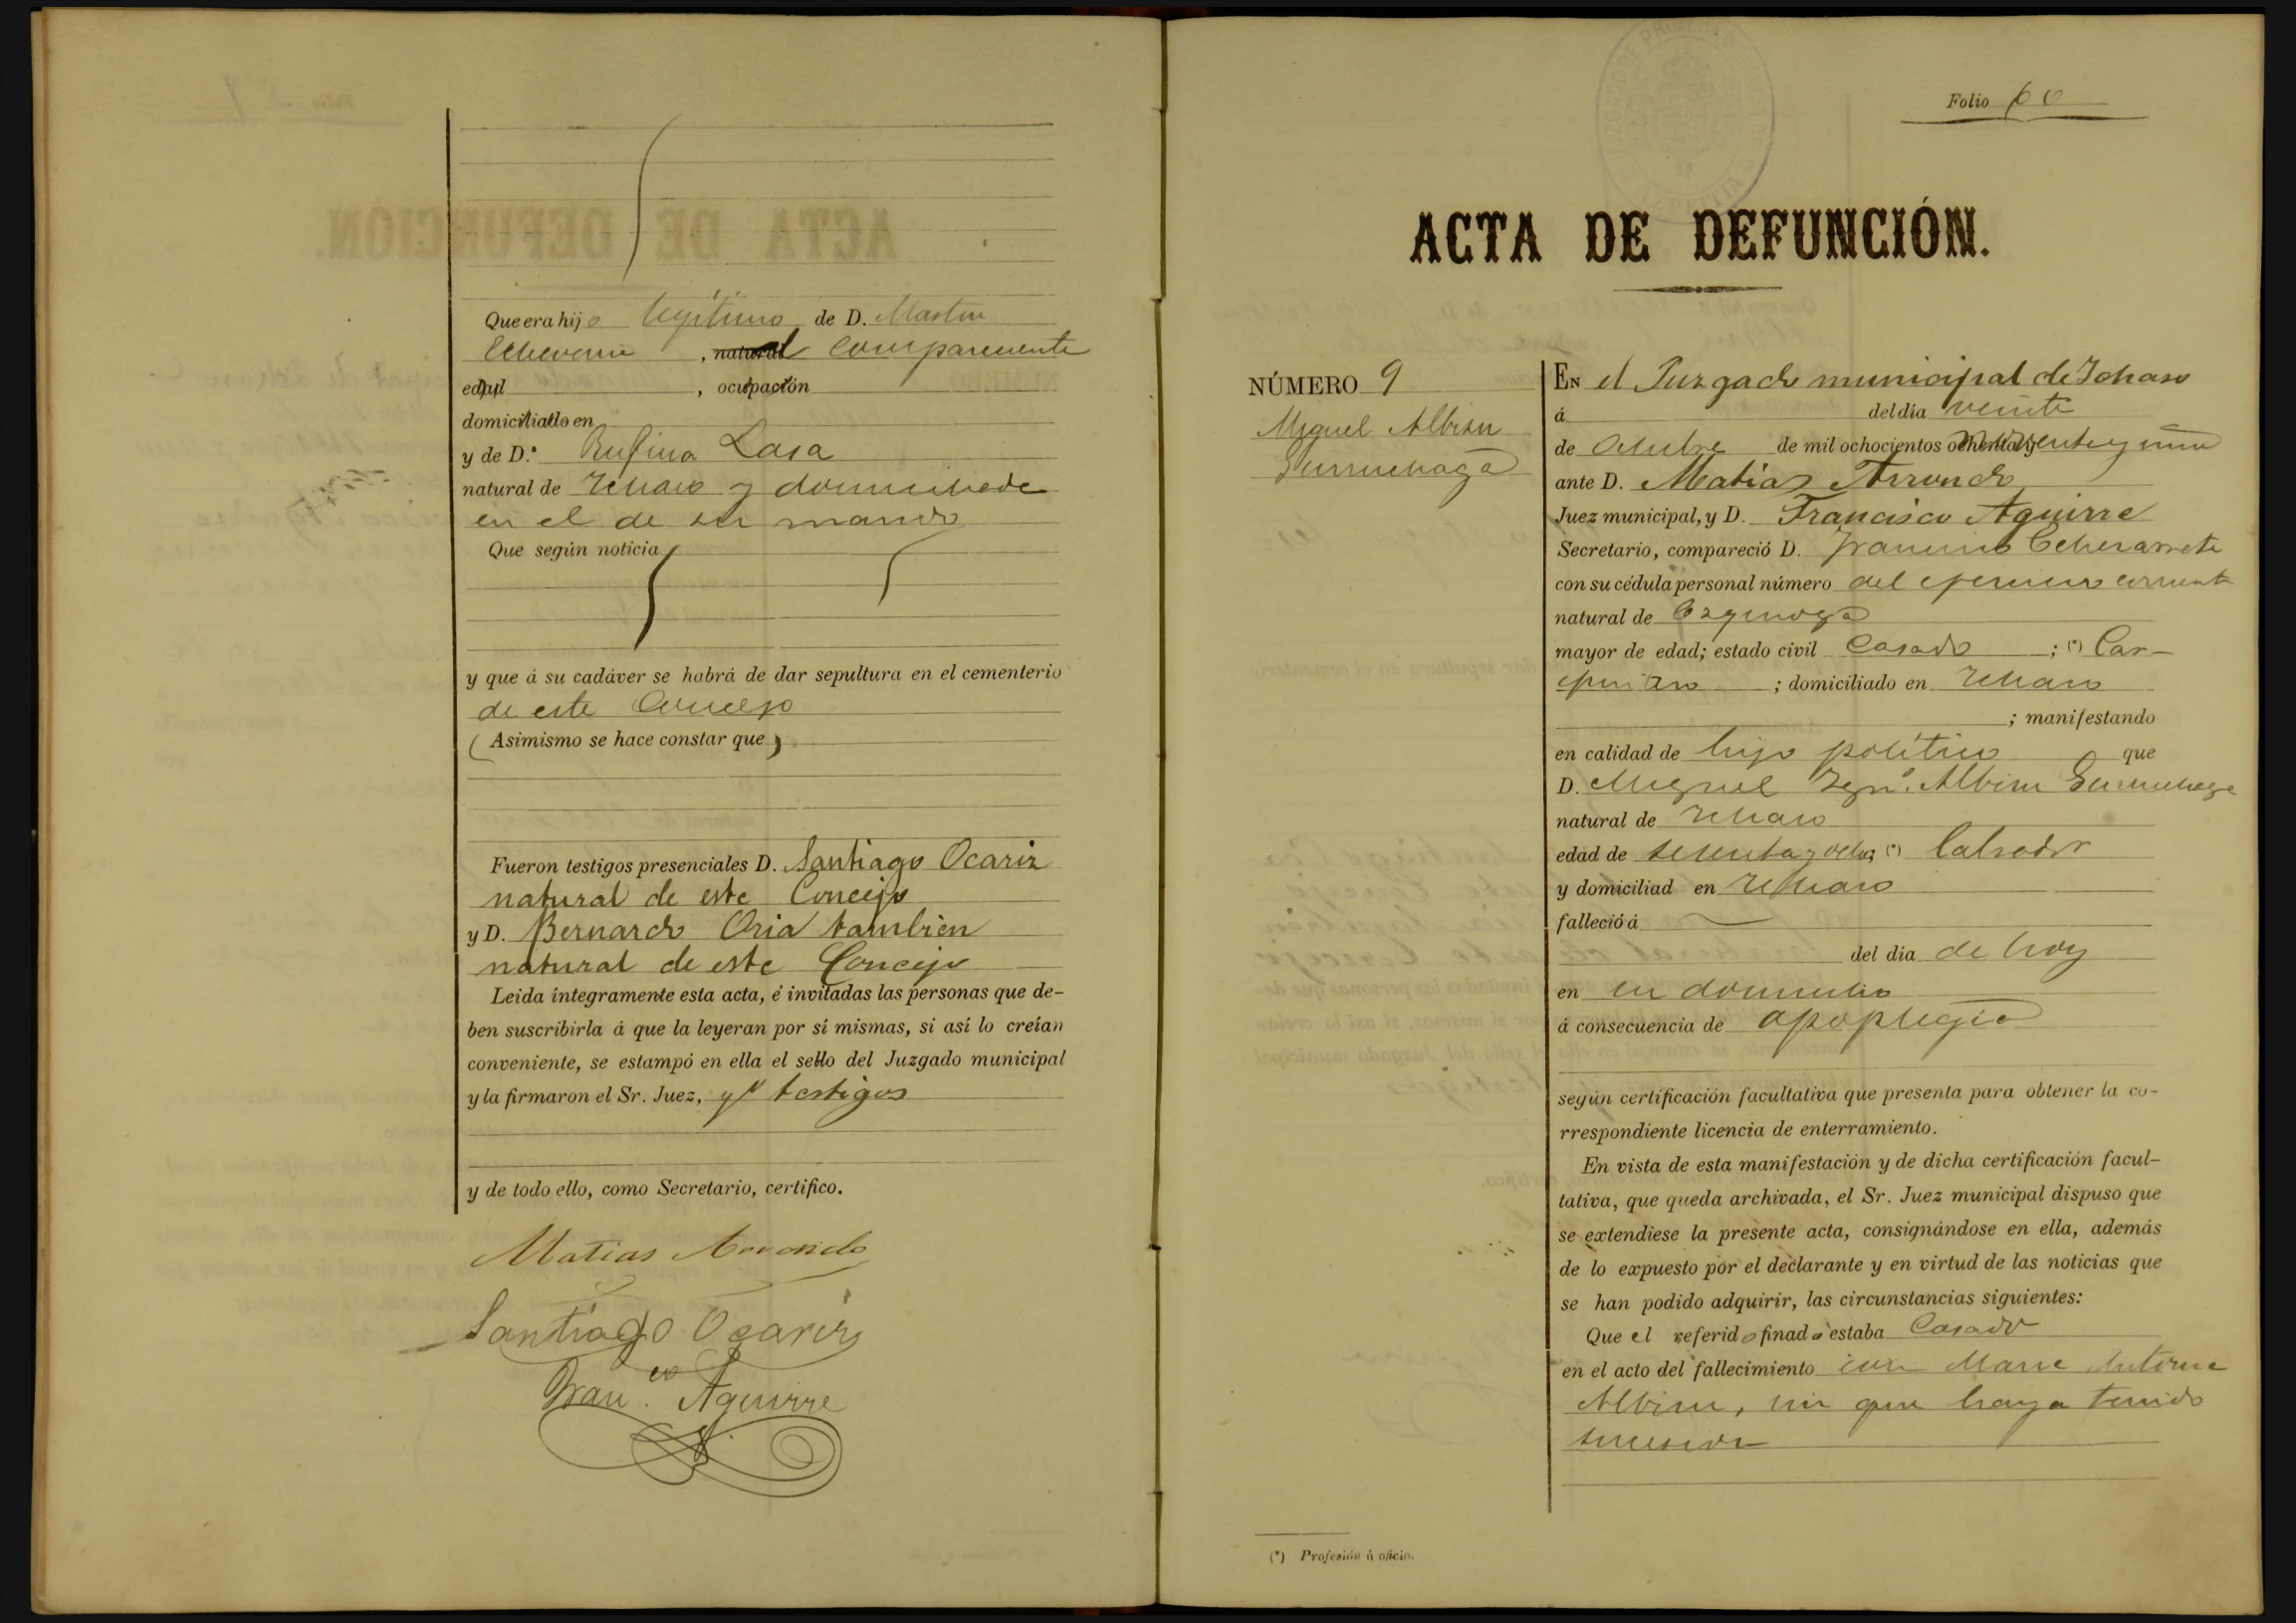 Que era hijo legítimo de D. Martin
Echeverria, natural compareciente
edad , ocupación
domiciliado en
y de D.ª Rufina Lasa
natural de Ichaso y domiciliada
en el de su marido
Que según noticia
y que á su cadáver se habrá de dar sepultura en el cementerio
de este Concejo
(Asimismo se hace constar que)
Fueron testigos presenciales D. Santiago Ocariz
natural de este Concejo
y D. Bernardo Oria tambien
natural de este Concejo
Leida íntegramente esta acta, é invitadas las personas que de-
ben suscribirla á que la leyeran por sí mismas, si así lo creían
conveniente, se estampó en ella el sello del Juzgado municipal
y la firmaron el Sr. Juez, y testigos
y de todo ello, como Secretario, certifico.
Matias Arrondo
Santiago Ocariz
Fran.co Aguirre
Folio 60
ACTA DE DEFUNCIÓN.
NÚMERO 9
Miguel Albisu
Gurruchaga
EN el Juzgado municipal de Ichaso
á del dia veinte
de Octubre de mil ochocientos ochenta y noventa y uno
ante D. Matias Arrondo
Juez municipal, y D. Francisco Aguirre
Secretario, compareció D. Francisco Echezarreta
con su cédula personal número del ejercicio corriente
natural de Ezquioga
mayor de edad; estado civil Casado ; (*) Car-
pintero ; domiciliado en Ichaso
; manifestando
en calidad de hijo político que
D. Miguel Ign.º Albisu Gurruchaga
natural de Ichaso
edad de y ocho (*) Labrador
y domiciliad en Ichaso
falleció á
del dia de hoy
en su domicilio
á consecuencia de apoplegia
según certificación facultativa que presenta para obtener la co-
rrespondiente licencia de enterramiento.
En vista de esta manifestación y de dicha certificación facul-
tativa, que queda archivada, el Sr. Juez municipal dispuso que
se extendiese la presente acta, consignándose en ella, además
de lo expuesto por el declarante y en virtud de las noticias que
se han podido adquirir, las circunstancias siguientes:
Que el referido finado estaba Casado
en el acto del fallecimiento con Maria Antonia
Albisu, sin que haya tenido
sucesion
(*) Profesión ú oficio.